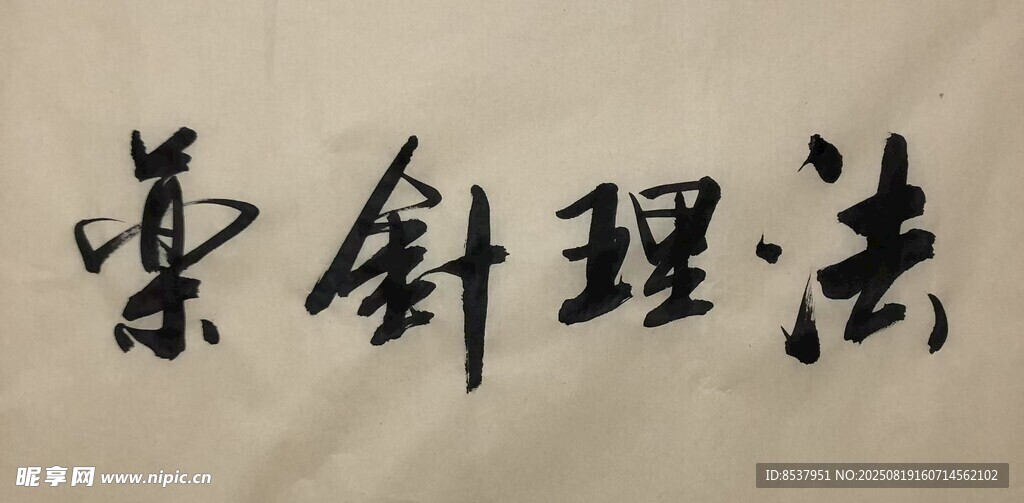 法理針藥
昵享网 www.nipic.cn
ID:8537951 NO:20250819160714562102